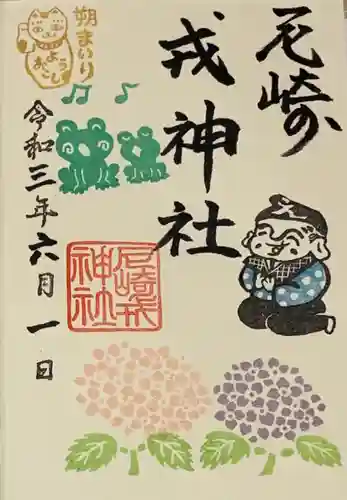 尼崎の
戎神社
朔まいり
ようおこし
令和三年六月一日
尼崎戎
神社